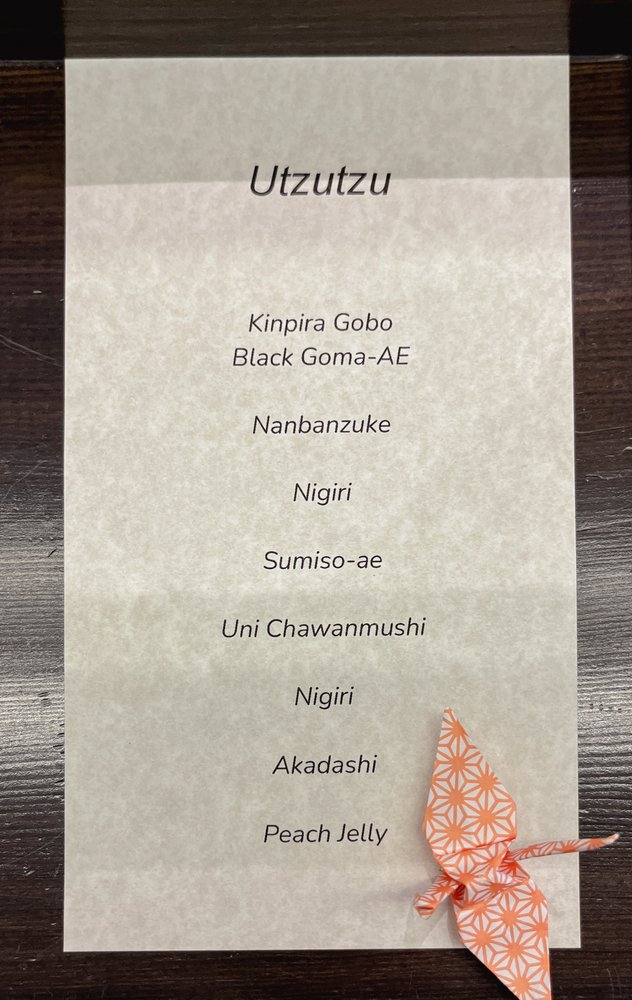 Utzutzu
Kinpira Gobo
Black Goma-AE
Nanbanzuke
Nigiri
Sumiso-ae
Uni Chawanmushi
Nigiri
Akadashi
Peach Jelly